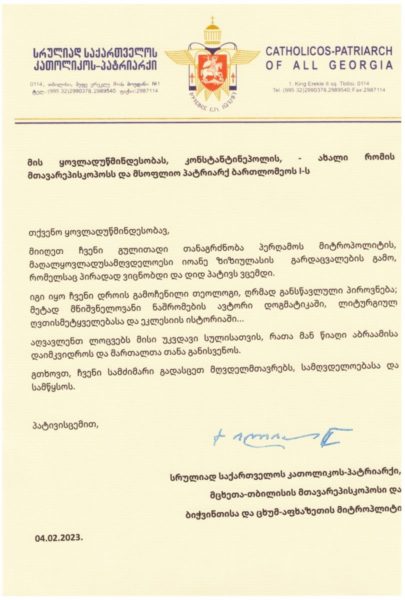 ᲡᲠᲣᲚᲘᲐᲓ ᲡᲐᲥᲐᲠᲗᲕᲔᲚᲝᲡ
ᲙᲐᲗᲝᲚᲘᲙᲝᲡ-ᲞᲐᲢᲠᲘᲐᲠᲥᲘ
CATHOLICOS-PATRIARCH
OF ALL GEORGIA
0114, თბილისი, მეფე ერეკლე II-ის მოედანი №1
ტელ: (995 32)2990378,2989540 ფაქსი:2987114
1, King Erekle II sq. Tbilisi, 0114
Tel: (995 32)2990378,2989540,Fax:2987114
მის ყოვლადუწმინდესობას, კონსტანტინეპოლის, - ახალი რომის
მთავარეპისკოპოსს და მსოფლიო პატრიარქ ბართლომეოს I-ს
თქვენო ყოვლადუწმინდესობავ,
მიიღეთ ჩვენი გულითადი თანაგრძნობა პერღამოს მიტროპოლიტის,
მაღალყოვლადუსამღვდელოესი იოანე ზიზიულასის გარდაცვალების გამო,
რომელსაც პირადად ვიცნობდი და დიდ პატივს ვცემდი.
იგი იყო ჩვენი დროის გამოჩენილი თეოლოგი, ღრმად განსწავლული პიროვნება;
მეტად მნიშვნელოვანი ნაშრომების ავტორი დოგმატიკაში, ლიტურგიულ
ღვთისმეტყველებასა და ეკლესიის ისტორიაში...
აღვავლენთ ლოცვებს მისი უკვდავი სულისათვის, რათა მან წიაღი აბრაამისა
დაიმკვიდროს და მართალთა თანა განისვენოს.
გთხოვთ, ჩვენი სამძიმარი გადასცეთ მღვდელმთავრებს, სამღვდელოებასა და
სამწყსოს.
პატივისცემით,
სრულიად საქართველოს კათოლიკოს-პატრიარქი,
მცხეთა-თბილისის მთავარეპისკოპოსი და
ბიჭვინთისა და ცხუმ-აფხაზეთის მიტროპლიტი
04.02.2023.